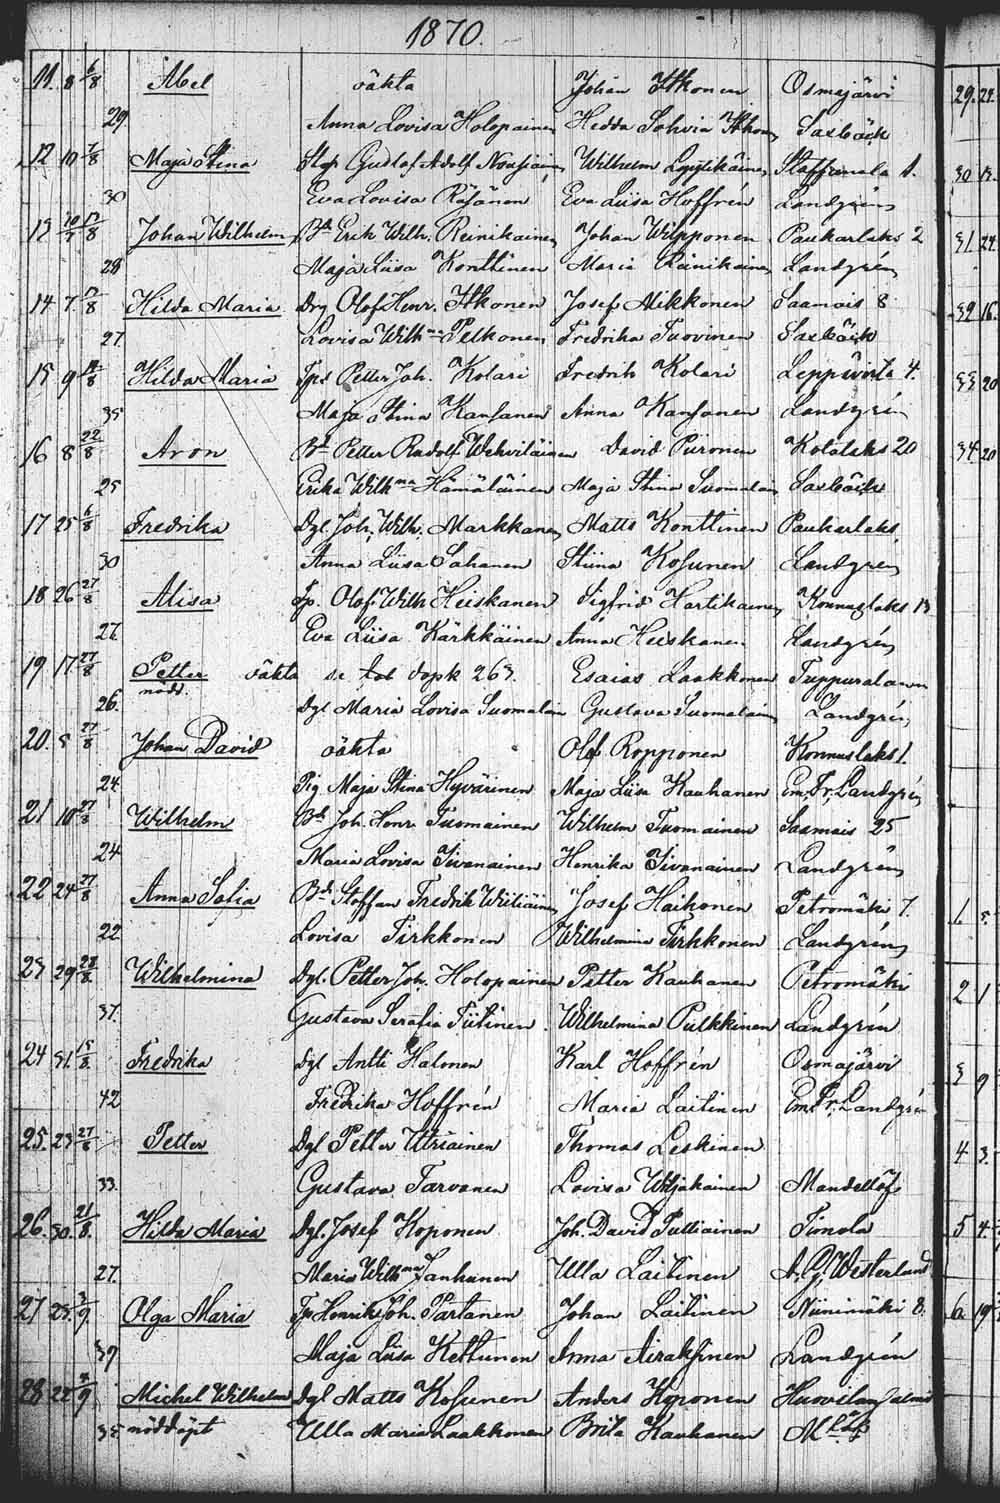 1870.
11. 8 6/8 Abel oäkta Johan Itkonen Osmajärvi
29 Anna Lovisa Holopainen Hedda Sohvia Itkonen Saxbäck
12 10 7/8 Maja Stina Gustaf Adolf Nousiainen Wilhelm Leppikäinen Staffansala 1.
30 Eva Lovisa Räsänen Eva Liisa Hoffrén Landgrén
13 Johan Wilhelm Bd Erik Wilh. Reinikainen Johan Wepponen Paukarlaks 2
28 Maja Liisa Konttinen Maria Reinikainen Landgrén
14 7. Hilda Maria Drg Olof Henr. Itkonen Josef Mikkonen Saamais 8
27. Lovisa Wilhma Pelkonen Fredrika Tuovinen Saxbäck
15 9 Hilda Maria Petter Joh. Kolari Fredrik Kolari Leppävirta 4.
35 Maja Stina Kansanen Anna Kansanen Landgrén
16 8 22/8 Aron Bd Petter Rudolf Wehviläinen David Piironen Kotalaks 20
25 Erika Wilhma Hämäläinen Maja Stina Suomalain Saxbäck
17 25 6/8 Fredrika Dgl Joh. Wilh. Markkanen Matts Konttinen Paukarlaks
30 Anna Liisa Sahanen Stiina Kosunen Landgrén
18 26 27/8 Alisa Sp. Olof Wilh Heiskanen Sigfrid Hartikainen Konnuslaks 13
27. Eva Liisa Kärkkäinen Anna Heiskanen Landgrén
19 17 27/8 Petter oäkta se dopk 263. Esaias Laakkonen Tuppuralanm
nödd.
26. Dgl Maria Lovisa Suomalain Gustava Suomalain Landgrén
20. 5 27/8 Johan David oäkta Olof Ropponen Konnuslaks 1.
24 Pig Maja Stina Hyvärinen Maja Liisa Kauhanen Em. Fr. Landgrén
21 10 27/8 Wilhelm Bd Joh. Henr. Tuomainen Wilhelm Tuomainen Saamais 25
24 Maria Lovisa Iivanainen Henrika Iivanainen Landgrén
22 24 27/8 Anna Sofia Bd Staffan Fredrik Wiitiäinen Josef Haikonen Petromäki 7.
22 Lovisa Tirkkonen Wilhelmina Tirkkonen Landgrén
23 29 28/8 Wilhelmina Dgl. Petter Joh. Holopainen Petter Kauhanen Petromäki
37. Gustava Serafia Tiitinen Wilhelmina Pulkkinen Landgrén
24 31. Fredrika Dgl Antti Halonen Karl Hoffrén Osmajärvi
42 Fredrika Hoffrén Maria Laitinen Em. Fr. Landgrén
25. 23 27/8 Petter Dgl Petter Utriainen Thomas Leskinen
33. Gustava Tarvanen Lovisa Wiljakainen Mandellöf
26. 30. 21/8. Hilda Maria Dgl. Josef Koponen Joh. David Tulliainen Timola
27. Maria Wilhma Janhunen Ulla Laitinen A. G. Westerlund
27 25. 3/9. Olga Maria Henrik Joh. Partanen Johan Laitinen Niinimäki 8.
39 Maja Liisa Kettunen Anna Airaksinen Landgrén
28 22 Michel Wilhelm Dgl Matts Kosunen Anders Koponen
35 nöddöpt Ulla Maria Laakkonen Brita Kauhanen